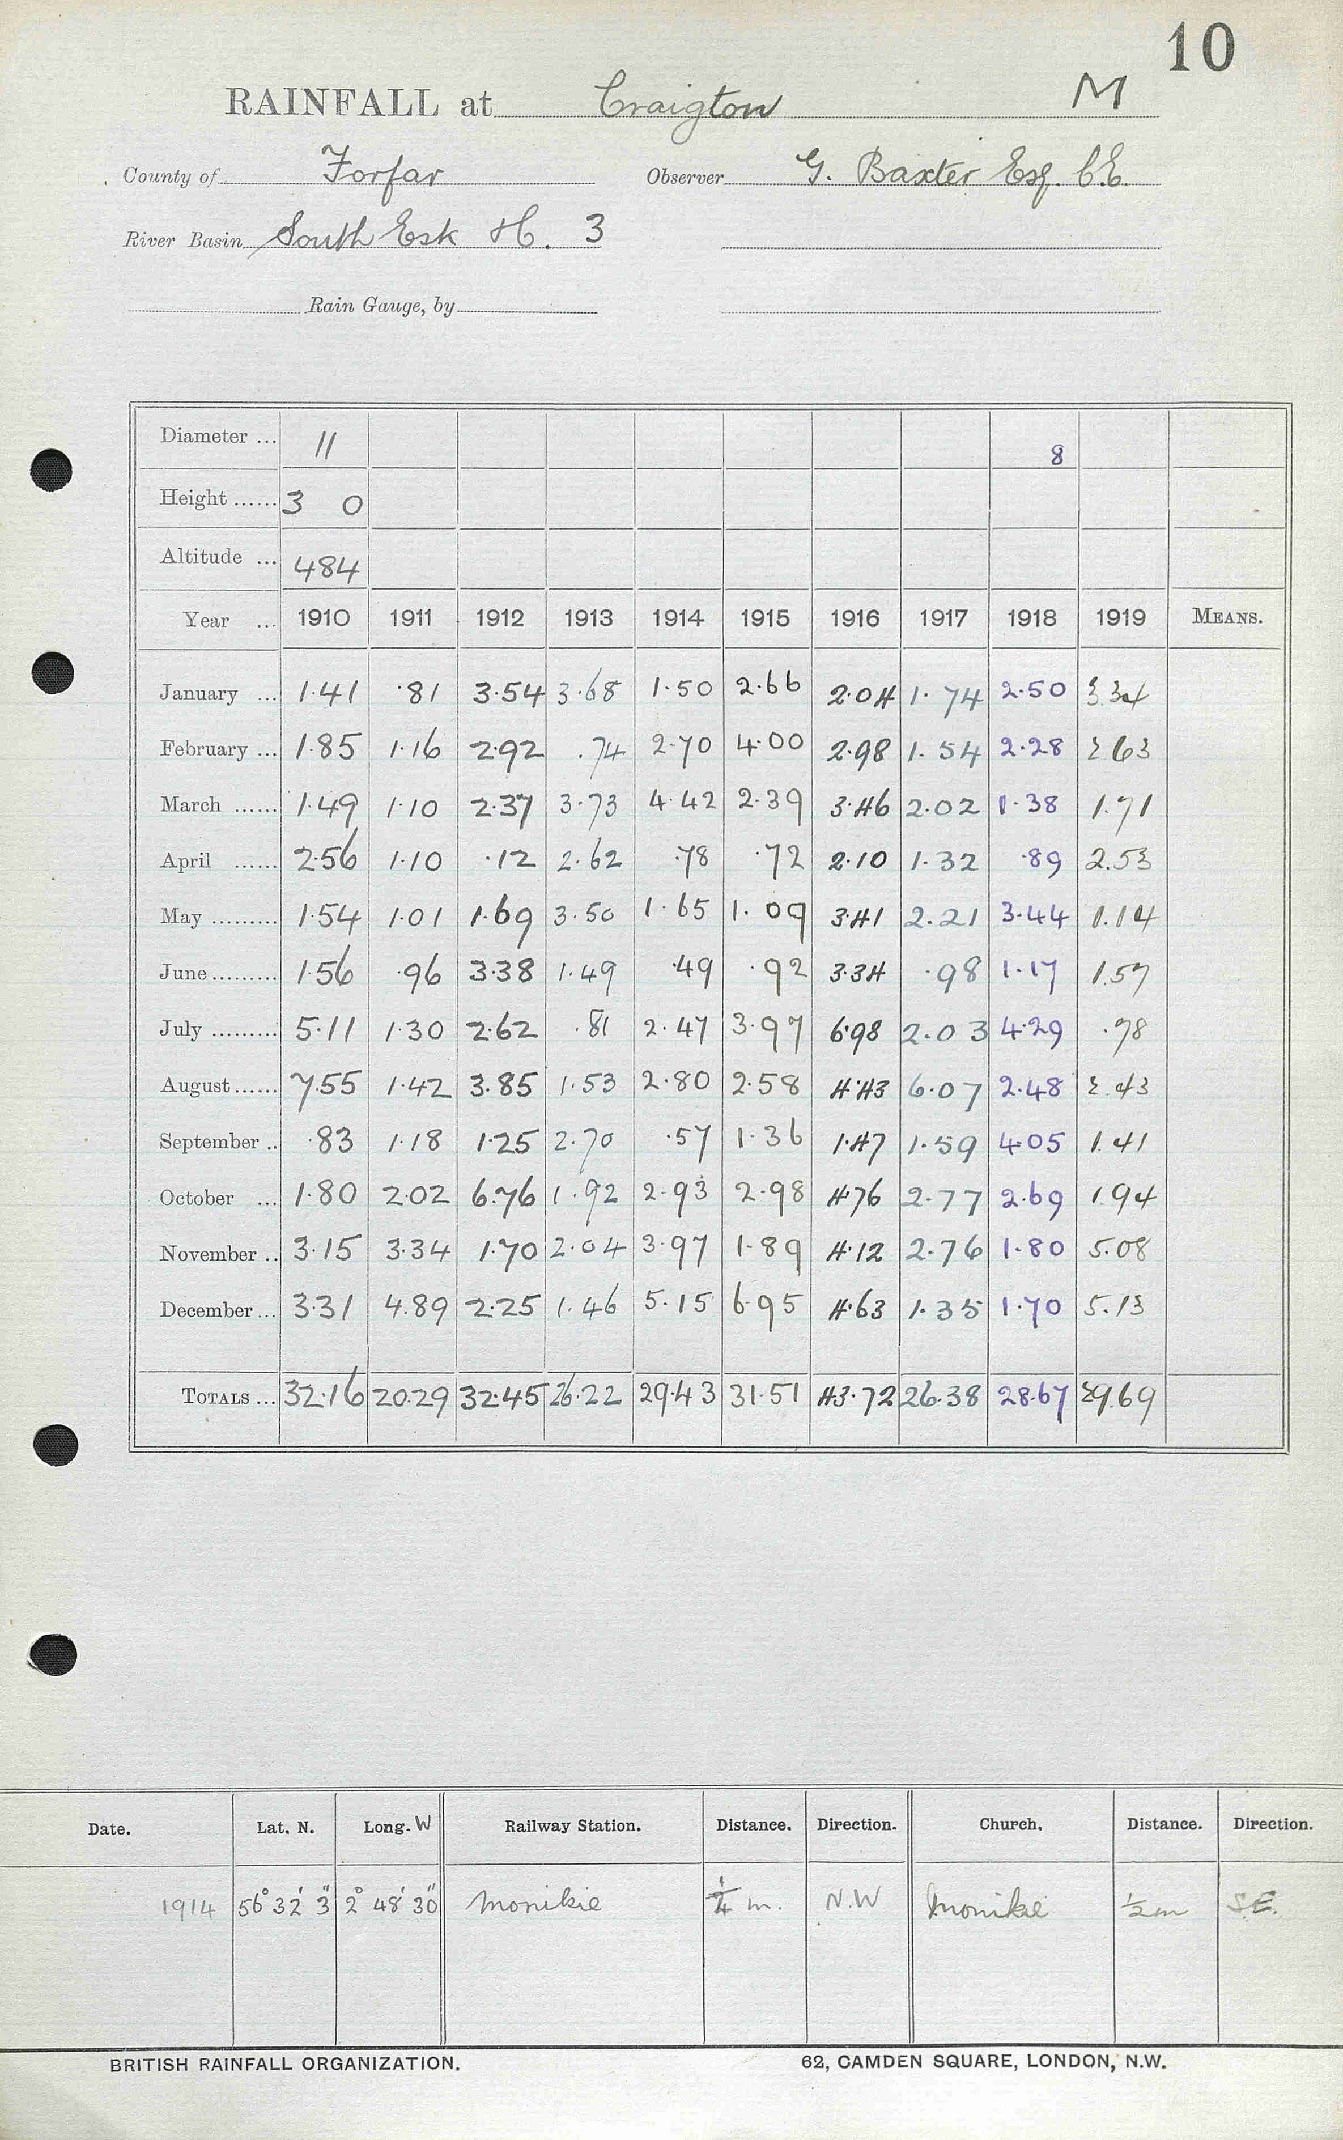 10
RAINFALL at Craigton M
County of Forfar Observer G. Baxter Esq. C.E.
River Basin South Esk H. 3
Rain Gauge, by
Diameter ... 11 8
Height ...... 3 0
Altitude ... 484
Year ... 1910 1911 1912 1913 1914 1915 1916 1917 1918 1919 MEANS.
January ... 1·41 ·81 3·54 3·68 1·50 2·66 2·04 1·74 2·50 3.34
February ... 1·85 1·16 2·92 .74 2·70 4·00 2·98 1·54 2·28 2.63
March ...... 1·49 1·10 2·37 3·73 4·42 2·39 3·46 2·02 1·38 1.71
April ...... 2·56 1·10 ·12 2·62 ·78 ·72 2·10 1·32 ·89 2.53
May ......... 1·54 1·01 1·69 3·50 1·65 1·09 3·41 2·21 3·44 1.14
June ......... 1·56 ·96 3·38 1·49 ·49 ·92 3·34 ·98 1·17 1.57
July ......... 5·11 1·30 2·62 ·81 2·47 3·97 6·98 2·03 4·29 .78
August ...... 7·55 1·42 3·85 1·53 2·80 2·58 4·43 6·07 2·48 2.43
September .. ·83 1·18 1·25 2·70 ·57 1·36 1·47 1·59 4·05 1.41
October ... 1·80 2·02 6·76 1·92 2·93 2·98 4·76 2·77 2·69 1.94
November .. 3·15 3·34 1·70 2·04 3·97 1·89 4·12 2·76 1·80 5.08
December ... 3·31 4·89 2·25 1·46 5·15 6·95 4·63 1·35 1·70 5.13
TOTALS ... 32·16 20·29 32·45 26·22 29·43 31·51 43·72 26·38 28·67 29.69
Date. Lat. N. Long. W Railway Station. Distance. Direction. Church. Distance. Direction.
1914 56° 32' 3" 2° 48' 30" Monikie ¼ m. N.W Monikie ½ m S.E.
BRITISH RAINFALL ORGANIZATION. 62, CAMDEN SQUARE, LONDON, N.W.